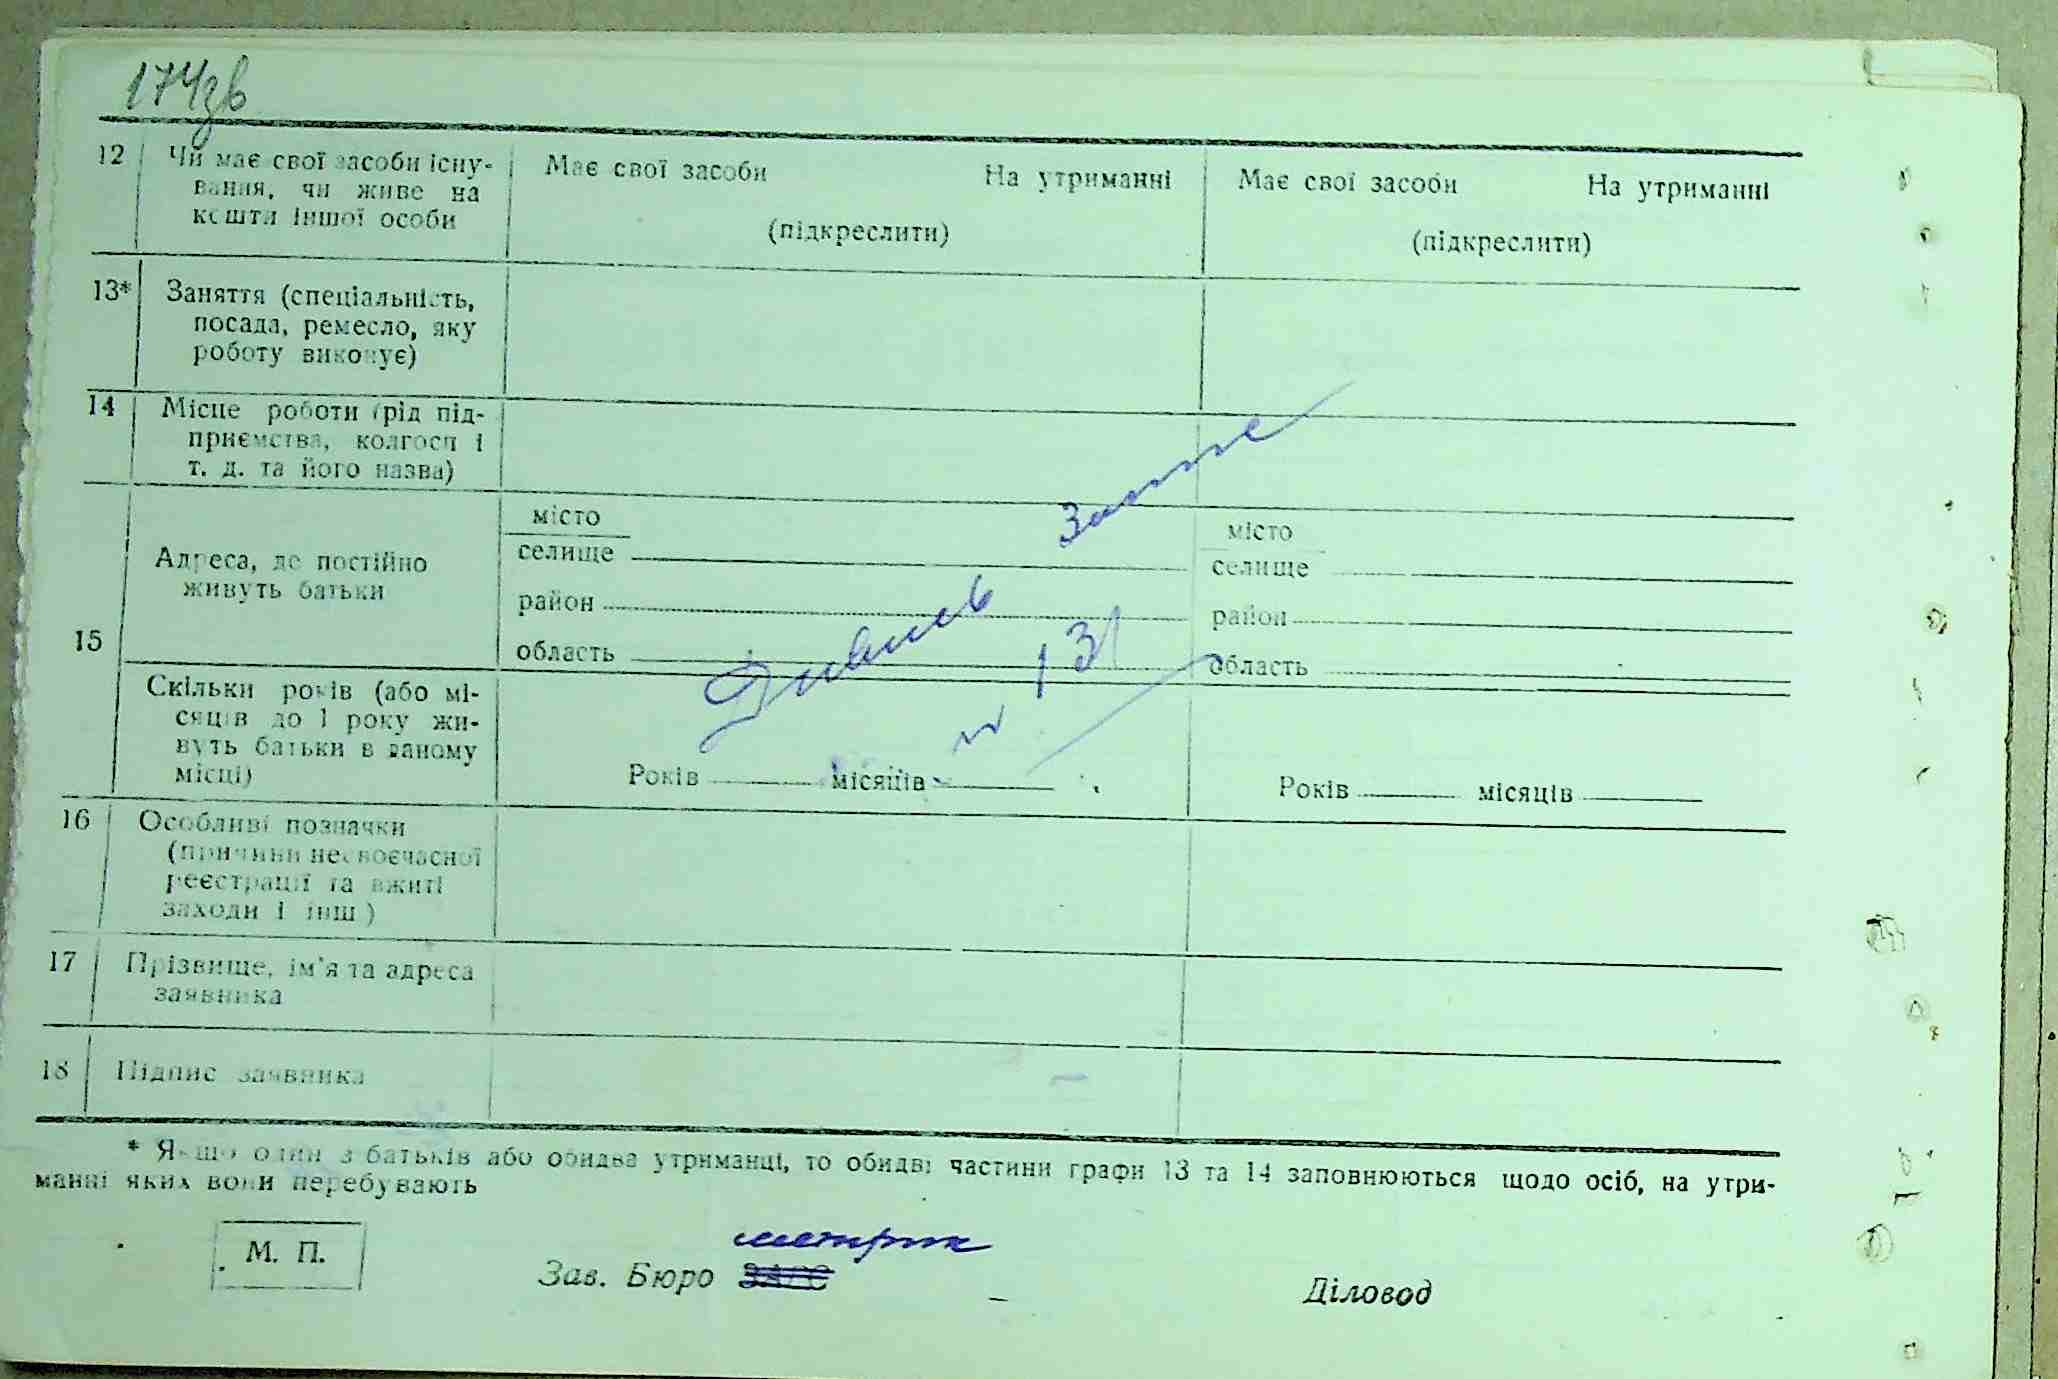 174зв
12 Чи має свої засоби існу- Має свої засоби На утриманні Має свої засоби На утриманні
вання, чи живе на
кошти іншої особи (підкреслити) (підкреслити)
13* Заняття (спеціальність,
посада, ремесло, яку
роботу виконує)
14 Місце роботи (рід під-
приємства, колгосп і
т. д. та його назва)
15 Адреса, де постійно
живуть батьки
місто місто
селище селище
район район
область область
Дивись
№ 131
Скільки років (або мі-
сяців до 1 року жи-
вуть батьки в даному
місці) Років місяців Років місяців
16 Особливі позначки
(причини несвоєчасної
реєстрації та вжиті
заходи і інш)
17 Прізвище, ім'я та адреса
заявника
18 Підпис заявника
* Якщо один з батьків або обидва утриманці, то обидві частини графи 13 та 14 заповнюються щодо осіб, на утри-
манні яких вони перебувають
метрик
М. П. Зав. Бюро ЗАГС Діловод